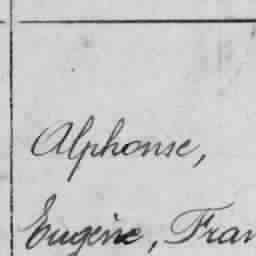 Alphonse,
Eugène, Fran